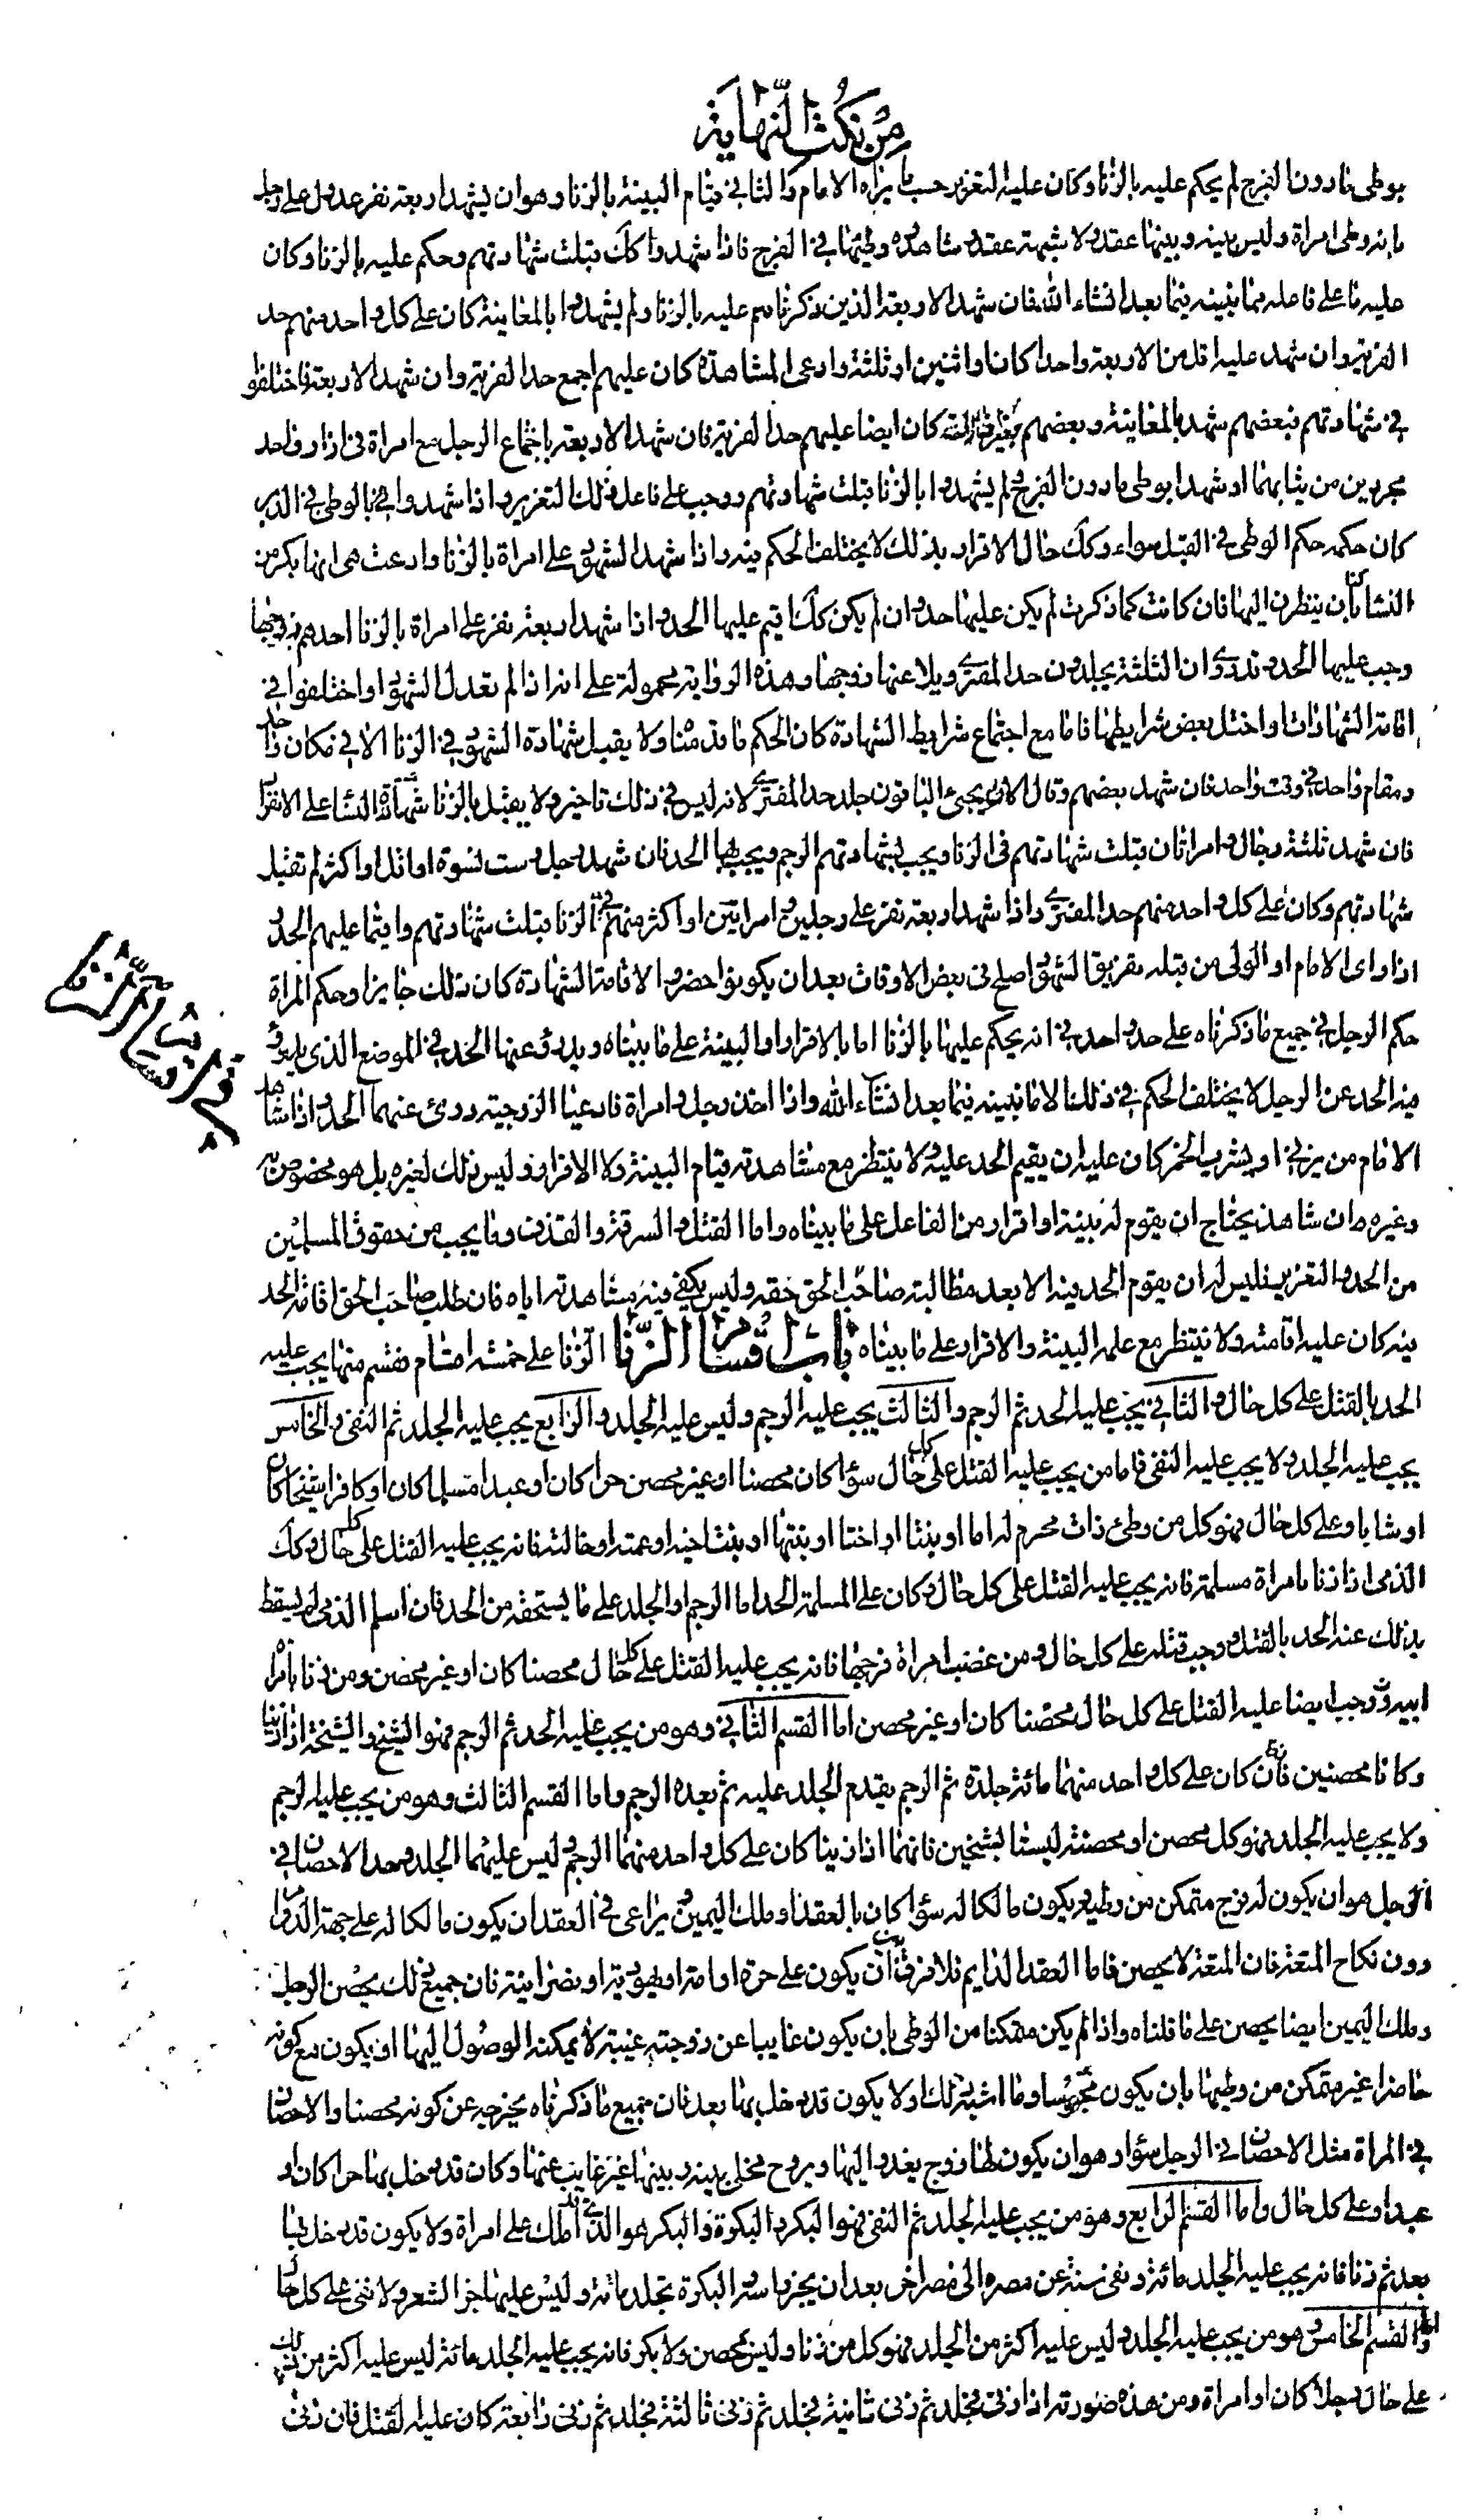 من نكت النهاية
بوطي مادون الفرج لم يحكم عليه بالزنا وكان عليه التعزير حسب ما يراه الامام والثاني قيام البينة بالزنا وهو ان يشهد اربعة نفر عدول على رجل
بانه وطى امراة وليس بينه وبينها عقد ولا شبهة عقد وشاهدوه وطيها في الفرج فاذا شهدوا كك قبلت شهادتهم وحكم عليه بالزنا وكان
عليه ما على فاعله مما نبينه فيما بعد انشاء الله فان شهد الاربعة الذين ذكرناهم عليه بالزنا ولم يشهدوا بالمعاينة كان على كل واحد منهم حد
الفرية وان شهد عليه اقل من الاربعة واحدا كان او اثنين او ثلثة وادعى المشاهدة كان عليهم اجمع حد الفرية وان شهد الاربعة واختلفوا
في شهادتهم فبعضهم شهد بالمعاينة وبعضهم بغير ذلك كان ايضا عليهم حد الفرية فان شهد الاربعة باجتماع الرجل مع امراة في ازار واحد
مجردين من ثيابهما او شهدا بوطي مادون الفرج ولم يشهدوا بالزنا قبلت شهادتهم ووجب على فاعل ذلك التعزير واذا شهدوا في بالوطي في الدبر
كان حكمه حكم الوطي في القبل سواء وكك حال الاقرار بذلك لا يختلف الحكم فيه واذا شهد الشهود على امراة بالزنا وادعت هى انها بكر من
النسا بان ينظرن اليها فان كانت كما ذكرت لم يكن عليها حد وان لم يكن كك اقيم عليها الحد واذا شهد اربعة نفر على امراة بالزنا احدهم زوجها
وجب عليها الحد وقد روى ان الثلثة يجلدون حد المفترى ويلاعنها زوجها وهذه الرواية محمولة على انه اذا لم تعدل الشهود او اختلفوا في
اقامة الشهادات او اختل بعض شرايطها فاما مع اجتماع شرايط الشهادة كان الحكم ما قدمناه ولا يقبل شهادة الشهود في الزنا الا في مكان واحد
ومقام واحد في وقت واحد فان شهد بعضهم وقال الان يجىء الباقون جلد حد المفترى لانه ليس في ذلك تاخير ولا يقبل بالزنا شهادة النسا على الانفراد
فان شهد ثلثة رجال وامراتان قبلت شهادتهم فى الزنا ويجب بشهادتهم الرجم ويجب بها الحد فان شهد رجل وست نسوة او اقل او اكثر لم تقبل
شهادتهم وكان على كل واحد منهم حد المفترى واذا شهد اربعة نفر على رجلين وامراتين او اكثر منهم في الزنا قبلت شهادتهم واقيما عليهم الحد
اذا راى الامام او الوالى من قبله تفريق الشهود اصلح فى بعض الاوقات بعد ان يكونوا حضروا لاقامة الشهادة كان ذلك جايزا وحكم المراة
حكم الرجل في جميع ما ذكرناه على حد واحد في انه يحكم عليها بالزنا اما بالاقرار او البينة على ما بيناه ويدرؤ عنها الحد في الموضع الذى يدرؤ
فيه الحد عن الرجل لا يختلف الحكم في ذلك الا ما نبينه فيما بعد انشاء الله واذا اخذ رجل وامراة فادعيا الزوجية درئ عنهما الحد واذا شاهد
الامام من يزني او يشرب الخمر كان عليه ان يقيم الحد عليه ولا ينتظر مع مشاهدته قيام البينة ولا الاقرار وليس ذلك لغيره بل هو مخصوص به
وغيره وان شاهد يحتاج ان يقوم له بينة او اقرار من الفاعل على ما بيناه واما القتل والسرقة والقذف وما يجب من حقوق المسلمين
من الحد والتعزير فليس له ان يقوم الحد فيه الا بعد مطالبة صاحب الحق حقه وليس يكفى فيه مشاهدته اياه فان طلب صاحب الحق اقامة الحد
فيه كان عليه اقامته ولا ينتظر مع علمه البينة والاقرار على ما بيناه باب اقسام الزنا الزنا على خمسة اقسام فقسم منها يجب عليه
الحد بالقتل على كل حال والثاني يجب عليه الحد ثم الرجم والثالث يجب عليه الرجم وليس عليه الجلد والرابع يجب عليه الجلد ثم النفى والخامس
يجب عليه الجلد ولا يجب عليه النفى فاما من يجب عليه القتل على كل حال سواء كان محصنا او غير محصن حرا كان او عبدا مسلما كان او كافرا شيخا كان
او شابا وعلى كل حال فهو كل من وطئ ذات محرم له اما او بنتا او اختا او بنتها او بنت اخيه او عمته او خالته فانه يجب عليه القتل على كل حال وكك
الذمى اذا زنا بامراة مسلمة فانه يجب عليه القتل على كل حال وكان على المسلمة الحد اما الرجم او الجلد على ما يستحقه من الحد فان اسلم الذمى لم يسقط
بذلك عنه الحد بالقتل ووجب قتله على كل حال ومن غصب امراة فرجها فانه يجب عليه القتل على كل حال محصنا كان او غير محصن ومن زنا بامراة
ابيه وجب ايضا عليه القتل على كل حال محصنا كان او غير محصن اما القسم الثاني وهو من يجب عليه الحد ثم الرجم فهو الشيخ والشيخة اذا زنيا
وكانا محصنين فان كان على كل واحد منهما مائة جلدة ثم الرجم يقدم الجلد عليه ثم بعده الرجم واما القسم الثالث وهو من يجب عليه الرجم
ولا يجب عليه الجلد فهو كل محصن او محصنة ليسا بشيخين فانهما اذا زنيا كان على كل واحد منهما الرجم وليس عليهما الجلد وحد الاحصان في
الرجل هو ان يكون له فرج متمكن من وطيه ويكون مالكا له سواء كان بالعقد او ملك اليمين ويراعى في العقد ان يكون مالكا له على جهة الدوام
دون نكاح المتعة فان المتعة لا يحصن فاما العقد الدايم فلا فرق بين ان يكون على حرة او امة او يهودية او نصرانية فان جميع ذلك يحصن الرجل
وملك اليمين ايضا يحصن على ما قلناه واذا لم يكن متمكنا من الوطى بان يكون غايبا عن زوجته غيبة لا يمكنه الوصول اليها او يكون مع كونه
حاضرا غير متمكن من وطيها بان يكون محبوسا وما اشبه ذلك او لا يكون قد دخل بها بعد فان جميع ما ذكرناه يخرجه عن كونه محصنا والاحصان
في المراة مثل الاحصان في الرجل سواء وهو ان يكون لها زوج يغدو اليها ويروح مخلى بينه وبينها غير غايب عنها وكان قد دخل بها حرا كان او
عبدا وعلى كل حال واما القسم الرابع وهو من يجب عليه الجلد ثم النفى فهو البكر والبكرة والبكر هو الذى املك على امراة ولا يكون قد دخل بها
بعد ثم زنا فانه يجب عليه الجلد مائة ونفى سنة عن مصره الى مصر اخر بعد ان يجز راسه والبكرة تجلد مائة وليس عليها جز الشعر ولا نفى على كل حال
واما القسم الخامس وهو من يجب عليه الجلد وليس عليه اكثر من الجلد فهو كل من زنا وليس بمحصن ولا بكر فانه يجب عليه الجلد مائة ليس عليه اكثر من ذلك
على حال رجلا كان او امراة ومن هذه صورته اذا زنى فجلد ثم زنى ثانية فجلد ثم زنى ثالثة فجلد ثم زنى رابعة كان عليه القتل فان زنى
في اقسام الزنا